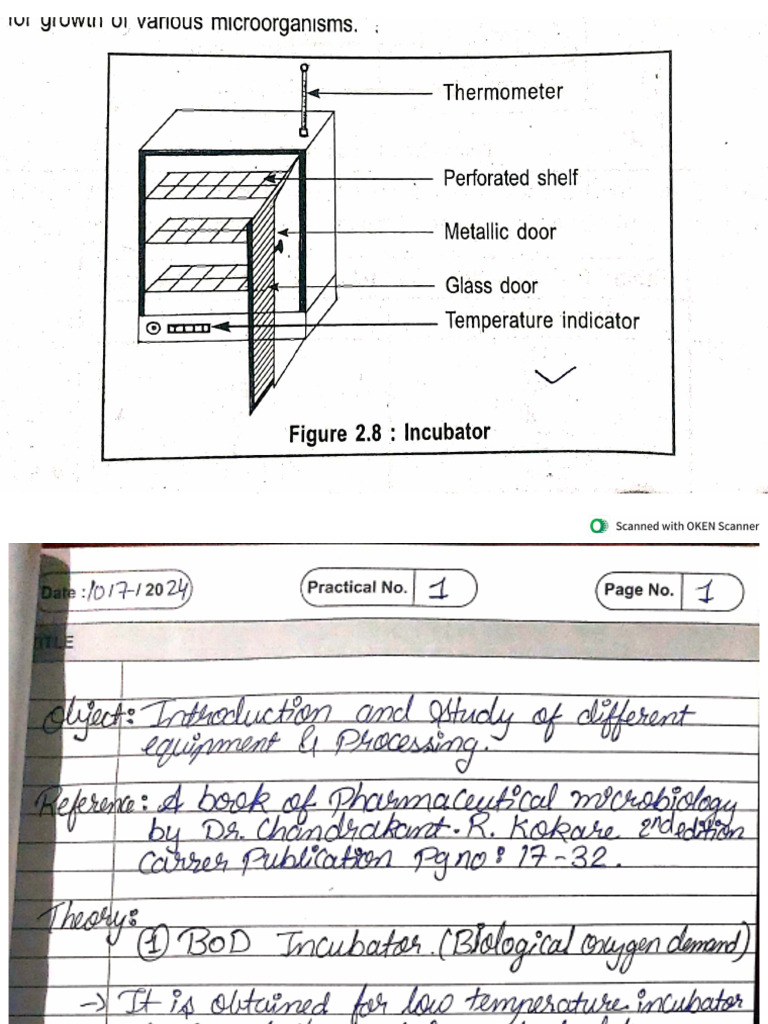 for growth of various microorganisms.
Thermometer
Perforated shelf
Metallic door
Glass door
Temperature indicator
Figure 2.8 : Incubator
Scanned with OKEN Scanner
Date :10/7/2024
Practical No. 1
Page No. 1
TITLE
Object: Introduction and Study of different
equipment & Processing.
Reference: A book of Pharmaceutical microbiology
by Dr. Chandrakant. R. Kokare 2nd edition
Carrer Publication Pg no: 17-32.
Theory:
① BOD Incubator. (Biological oxygen demand)
→ It is obtained for low temperature incubator